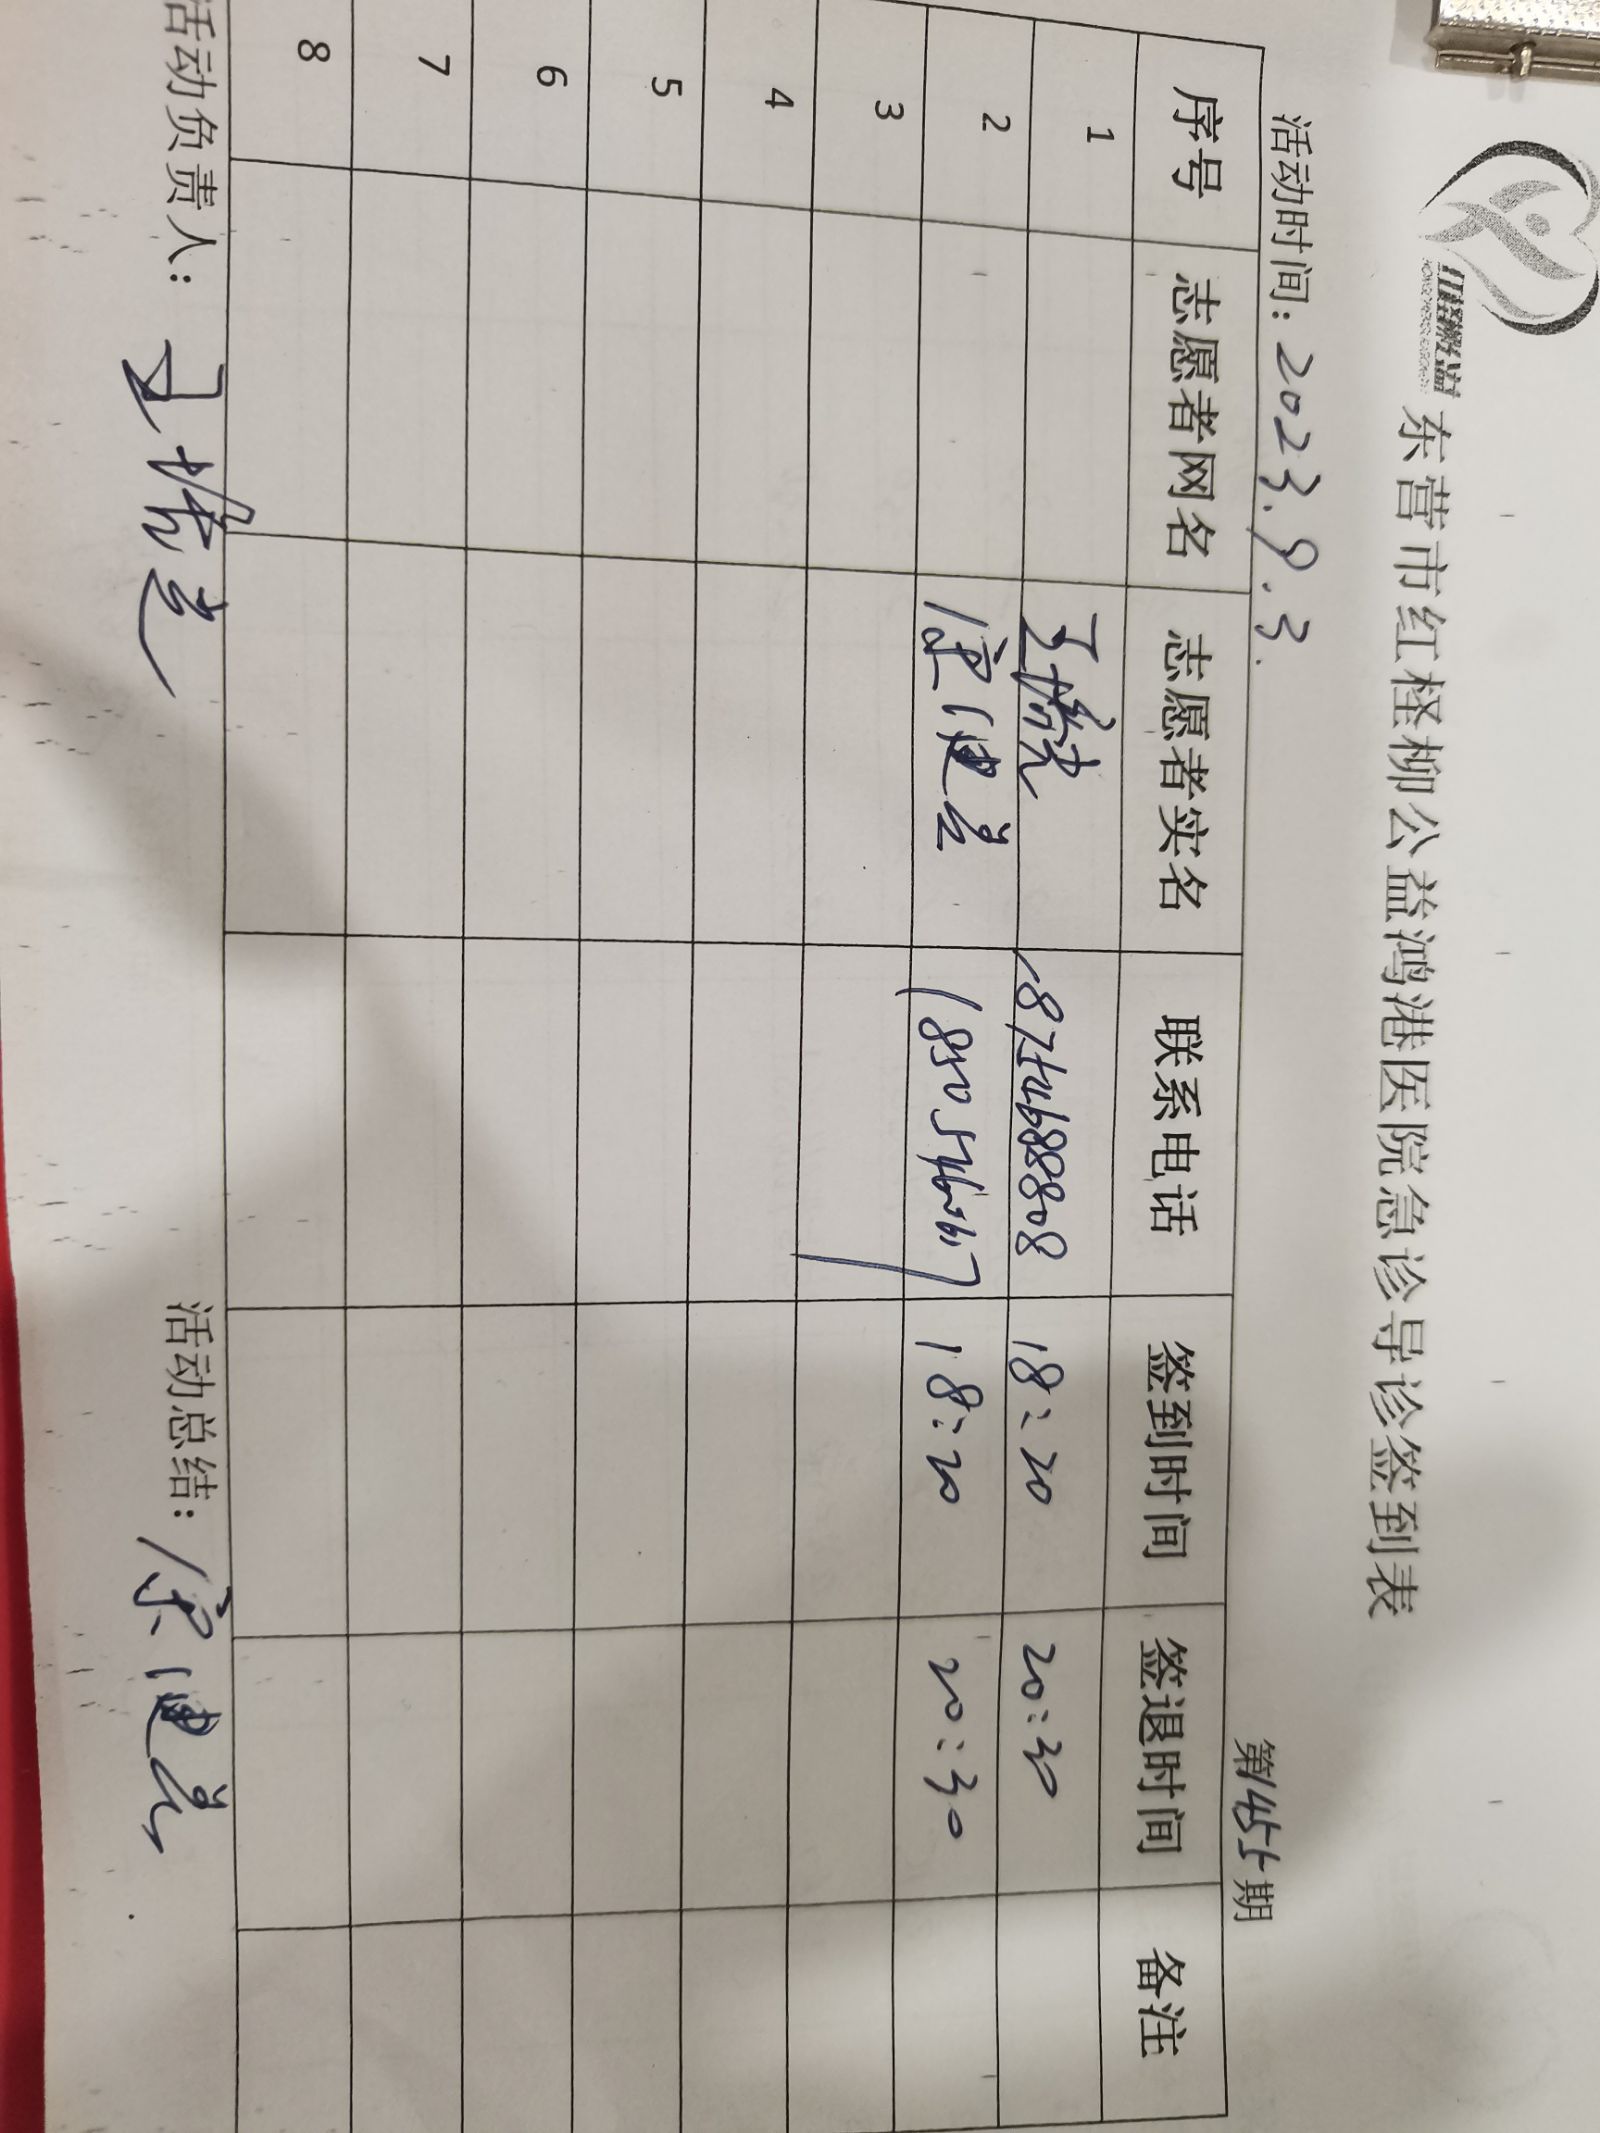 红柽柳公益
东营市红柽柳公益鸿港医院急诊导诊签到表
活动时间：2023.9.3. 第1455期
序号 志愿者网名 志愿者实名 联系电话 签到时间 签退时间 备注
1 18754688808 18:20 20:30
2 18:20 20:30
3
4
5
6
7
8
活动负责人： 活动总结：